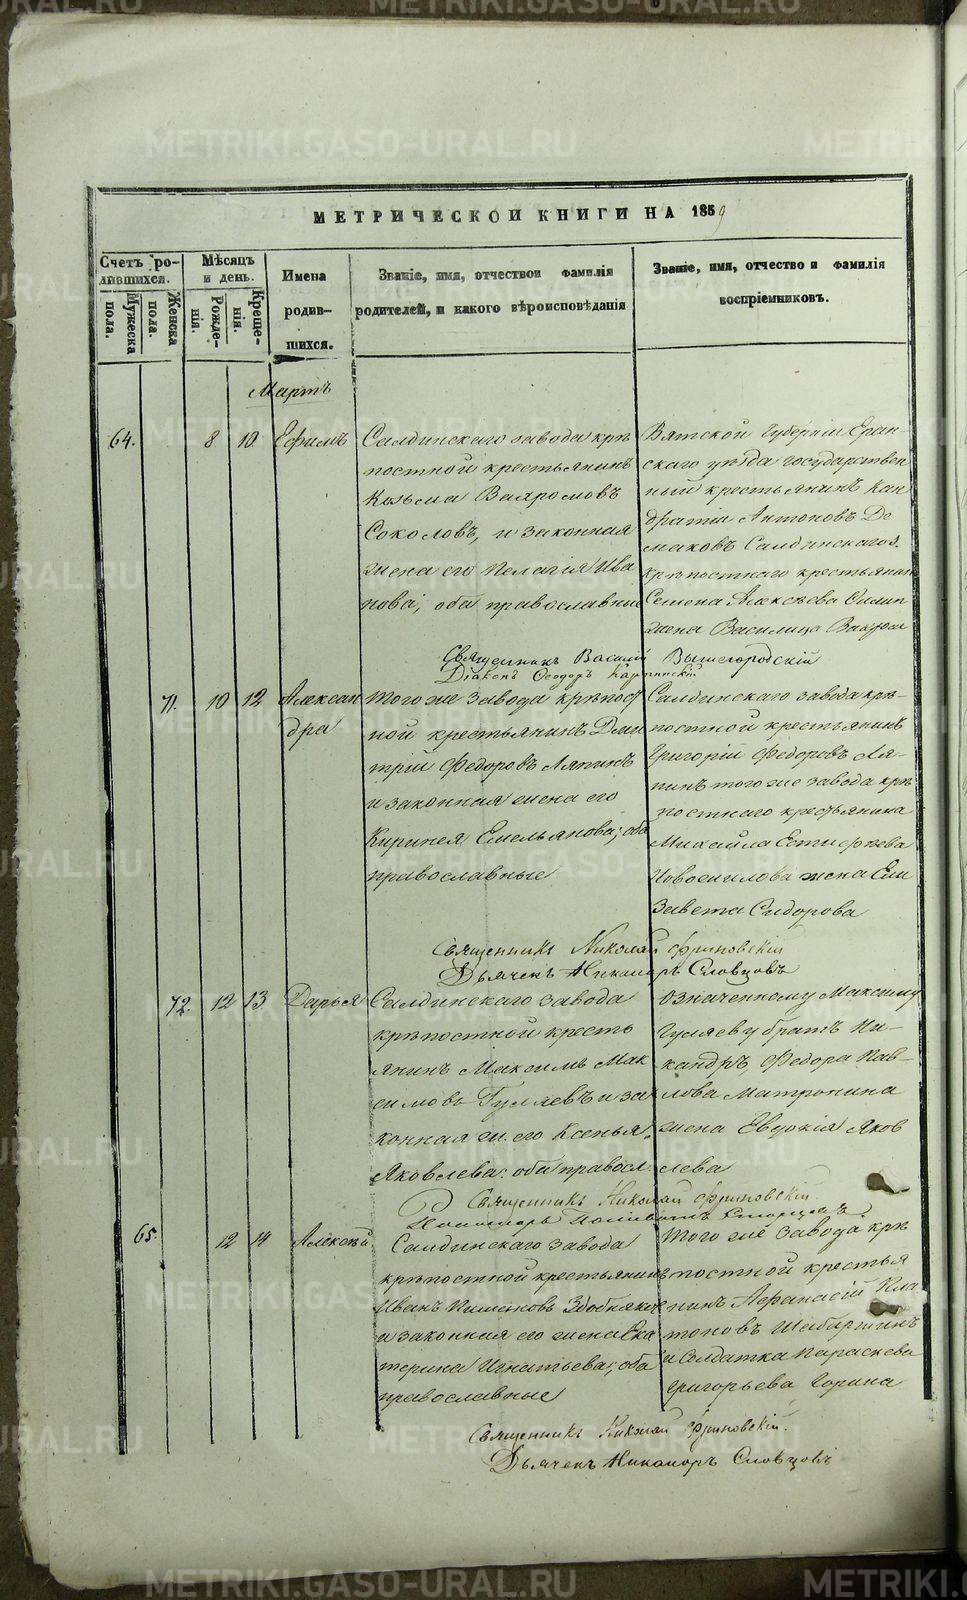 МЕТРИЧЕСКОЙ КНИГИ НА 1859
Счетъ ро-
дившихся.
Мужеска
пола.
Женска
пола.
Мѣсяцъ
и день.
Рожде-
нія.
Креще-
нія.
Имена
родив-
шихся.
Званіе, имя, отчество и фамилія
родителей, и какого вѣроисповѣданія
Званіе, имя, отчество и фамилія
воспріемниковъ.
Мартъ
64. 8 10 Ефимъ
Салдинскаго завода крѣ
постной крестьянинъ
Козьма
Соколовъ, и законная
жена его Пелагія Ива
нова, оба православные
Вятской губерніи Еран
скаго уѣзда государствен
ный крестьянинъ Кан
дратій Антоновъ До
маковъ Салдинскаго з.
крѣпостнаго крестьянин
Семена Алексѣева
жена Василиса
Священникъ Василій Вышегородскій
Діаконъ Ѳеодоръ
71. 10 12 Алексан
дра
Того же завода крѣпост
ной крестьянинъ Дми
трій Федоровъ Ляпинъ
и законная жена его
Киринея Емельянова; оба
православные
Салдинскаго завода крѣ-
постной крестьянинъ
Григорій Федоровъ Ля-
пинъ того же завода крѣ
постнаго крестьянина
Михайла
жена Ели
завета Сидорова
Священникъ Николай Фриновскій
Дьячекъ Никаноръ Словцовъ
72. 12 13 Дарья
Салдинскаго завода
крѣпостной кресть
янинъ Максимъ Мак
симовъ Гуляевъ и за
конная ж. его Ксенья
Яковлева: оба правосл.
означенному Максиму
Гуляеву братъ Ни-
кандръ, Федора Пав-
лова Матронина
жена Евдокія Яков
лева
Священникъ Николай Фриновскій
65. 12 14 Алексѣй
Салдинскаго завода
крѣпостной крестьянинъ
Иванъ Пименовъ
и законная его жена Ека
терина Игнатьева; оба
православные
Того же завода крѣ
постной крестья
нинъ Афанасій Пла
тоновъ Шабаршинъ
и Солдатка Параскева
Григорьева Горина
Священникъ Николай Фриновскій.
Дьячекъ Никаноръ Словцовъ
METRIKI.GASO-URAL.RU